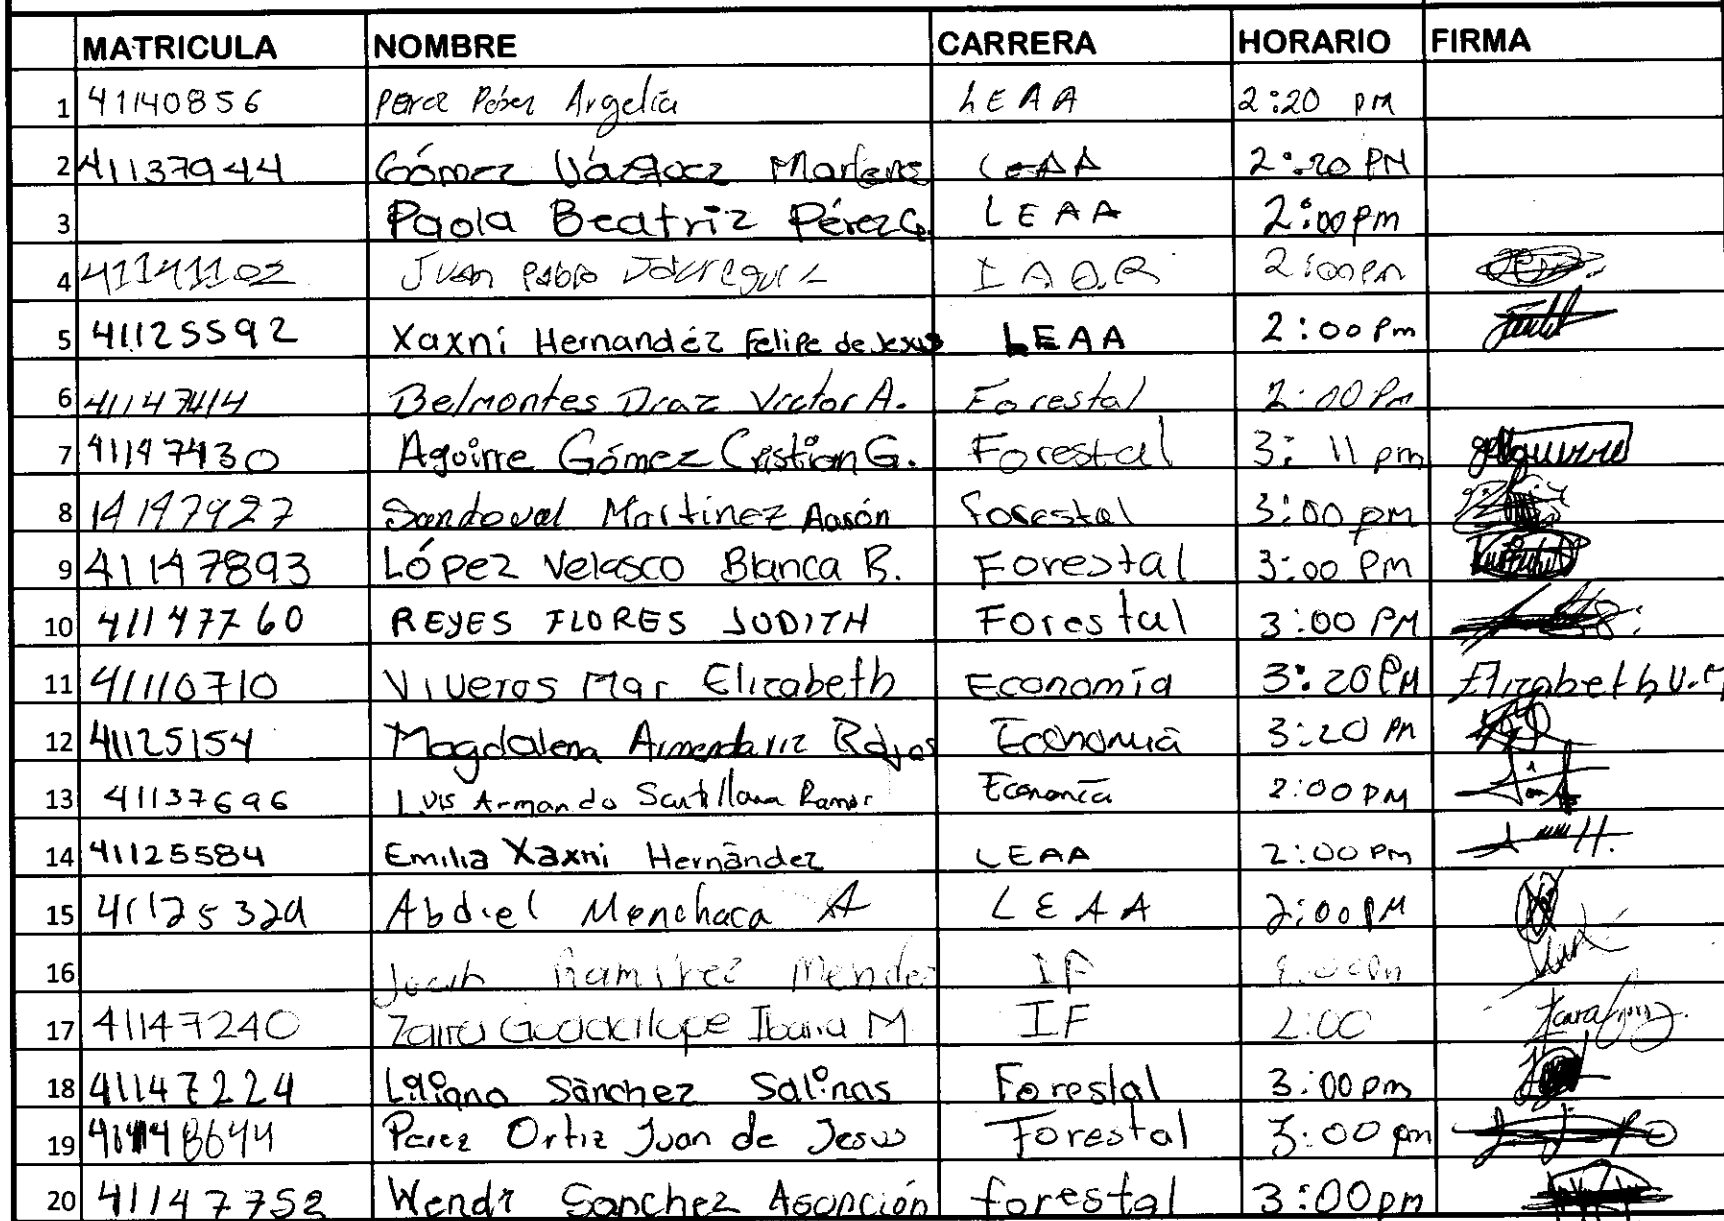 MATRICULA NOMBRE CARRERA HORARIO FIRMA
1 41140856 Perez Pérez Argelia LEAA 2:20 pm
2 41137944 Gómez Vázquez Marlene LEAA 2:20 PM
3 Paola Beatriz Pérez G. LEAA 2:00pm
4 41141102 Juan Pablo I A O R 2:00pm
5 41125592 Xaxni Hernandéz Felipe de Jesus LEAA 2:00 Pm
6 41147414 Belmontes Diaz Victor A. Forestal 2:00 Pm
7 41147430 Aguirre Gómez Cristian G. Forestal 3:11 pm
8 14147927 Sandoval Martinez Aarón forestal 3:00 pm
9 41147893 López Velasco Blanca R. Forestal 3:00 Pm
10 41147760 REYES FLORES JUDITH Forestal 3:00 PM
11 41110710 Viveros Mar Elizabeth Economía 3:20 PM Elizabeth V.M
12 41125154 Magdalena Armendariz Rojas Economía 3:20 PM
13 41137696 Luis Armando Santillana Ramos Economía 2:00 PM
14 41125584 Emilia Xaxni Hernández LEAA 2:00 Pm
15 41125329 Abdiel Menchaca A LEAA 2:00 PM
16 Ramirez Mendez IF
17 41147240 Zaira Guadalupe Ibarra M IF 2:00
18 41147224 Liliana Sánchez Salinas Forestal 3:00 pm
19 Perez Ortiz Juan de Jesus Forestal 3:00 pm
20 41147752 Wendi Sanchez Asunción forestal 3:00pm